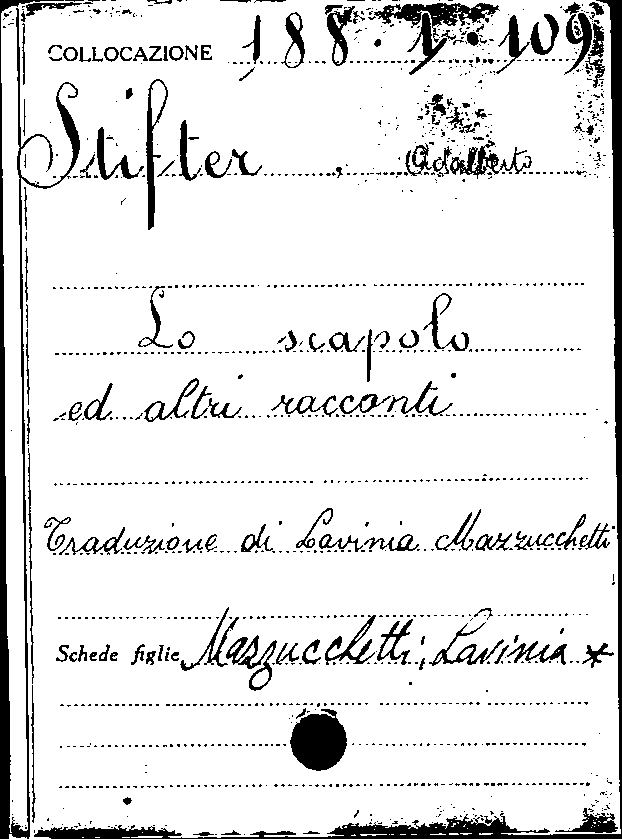 COLLOCAZIONE 188.1.109
Stifter, Adalberto
Lo scapolo
ed altri racconti
Traduzione di Lavinia Mazzucchetti
Schede figlie Mazzucchetti, Lavinia *